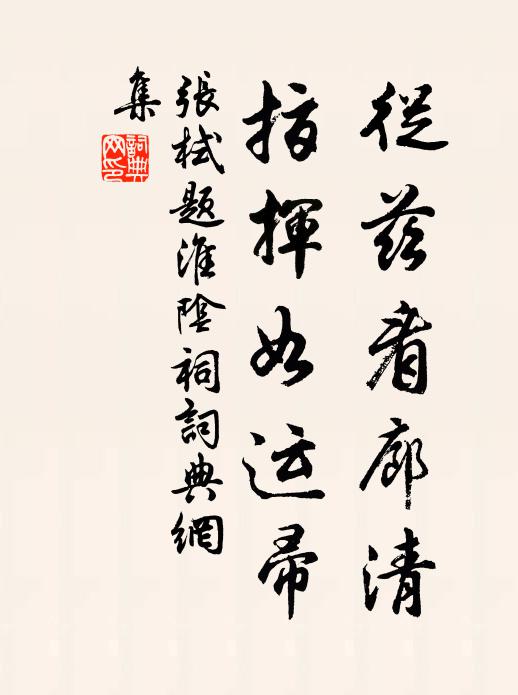 從兹看廓清
指揮如运帚
張栻題淮陰祠詞典網
集
詞典網印